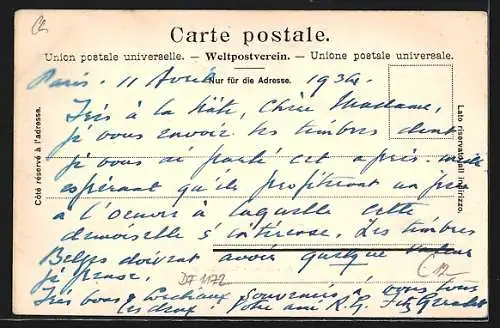 Carte postale.
Union postale universelle. – Weltpostverein. – Unione postale universale.
Nur für die Adresse.
Côté réservé à l'adresse.
Lato riservato all'indirizzo.
Paris. 11 Avril 1934.
Très à la hâte, Chère Madame,
je vous envoie les timbres dont
je vous ai parlé cet après-midi
espérant qu'ils profiteront un peu
à l'oeuvre à laquelle cette
demoiselle s'intéresse. Les timbres
Belges doivent avoir quelque valeur
je pense.
Très bons & cordiaux souvenirs à vous tous
les deux. Votre ami R. G.
DF 1172